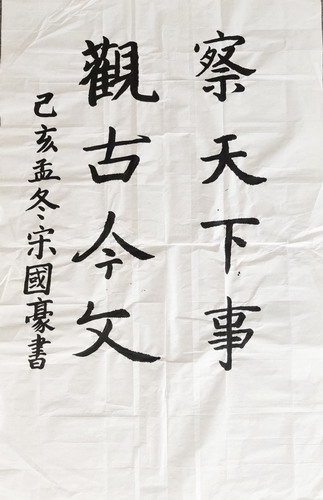 察天下事
觀古今文
己亥孟冬宋國豪書